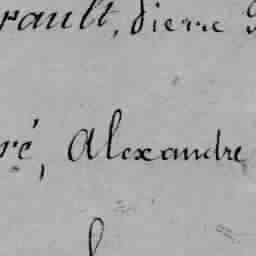 rault, Pierre
ré, Alexandre